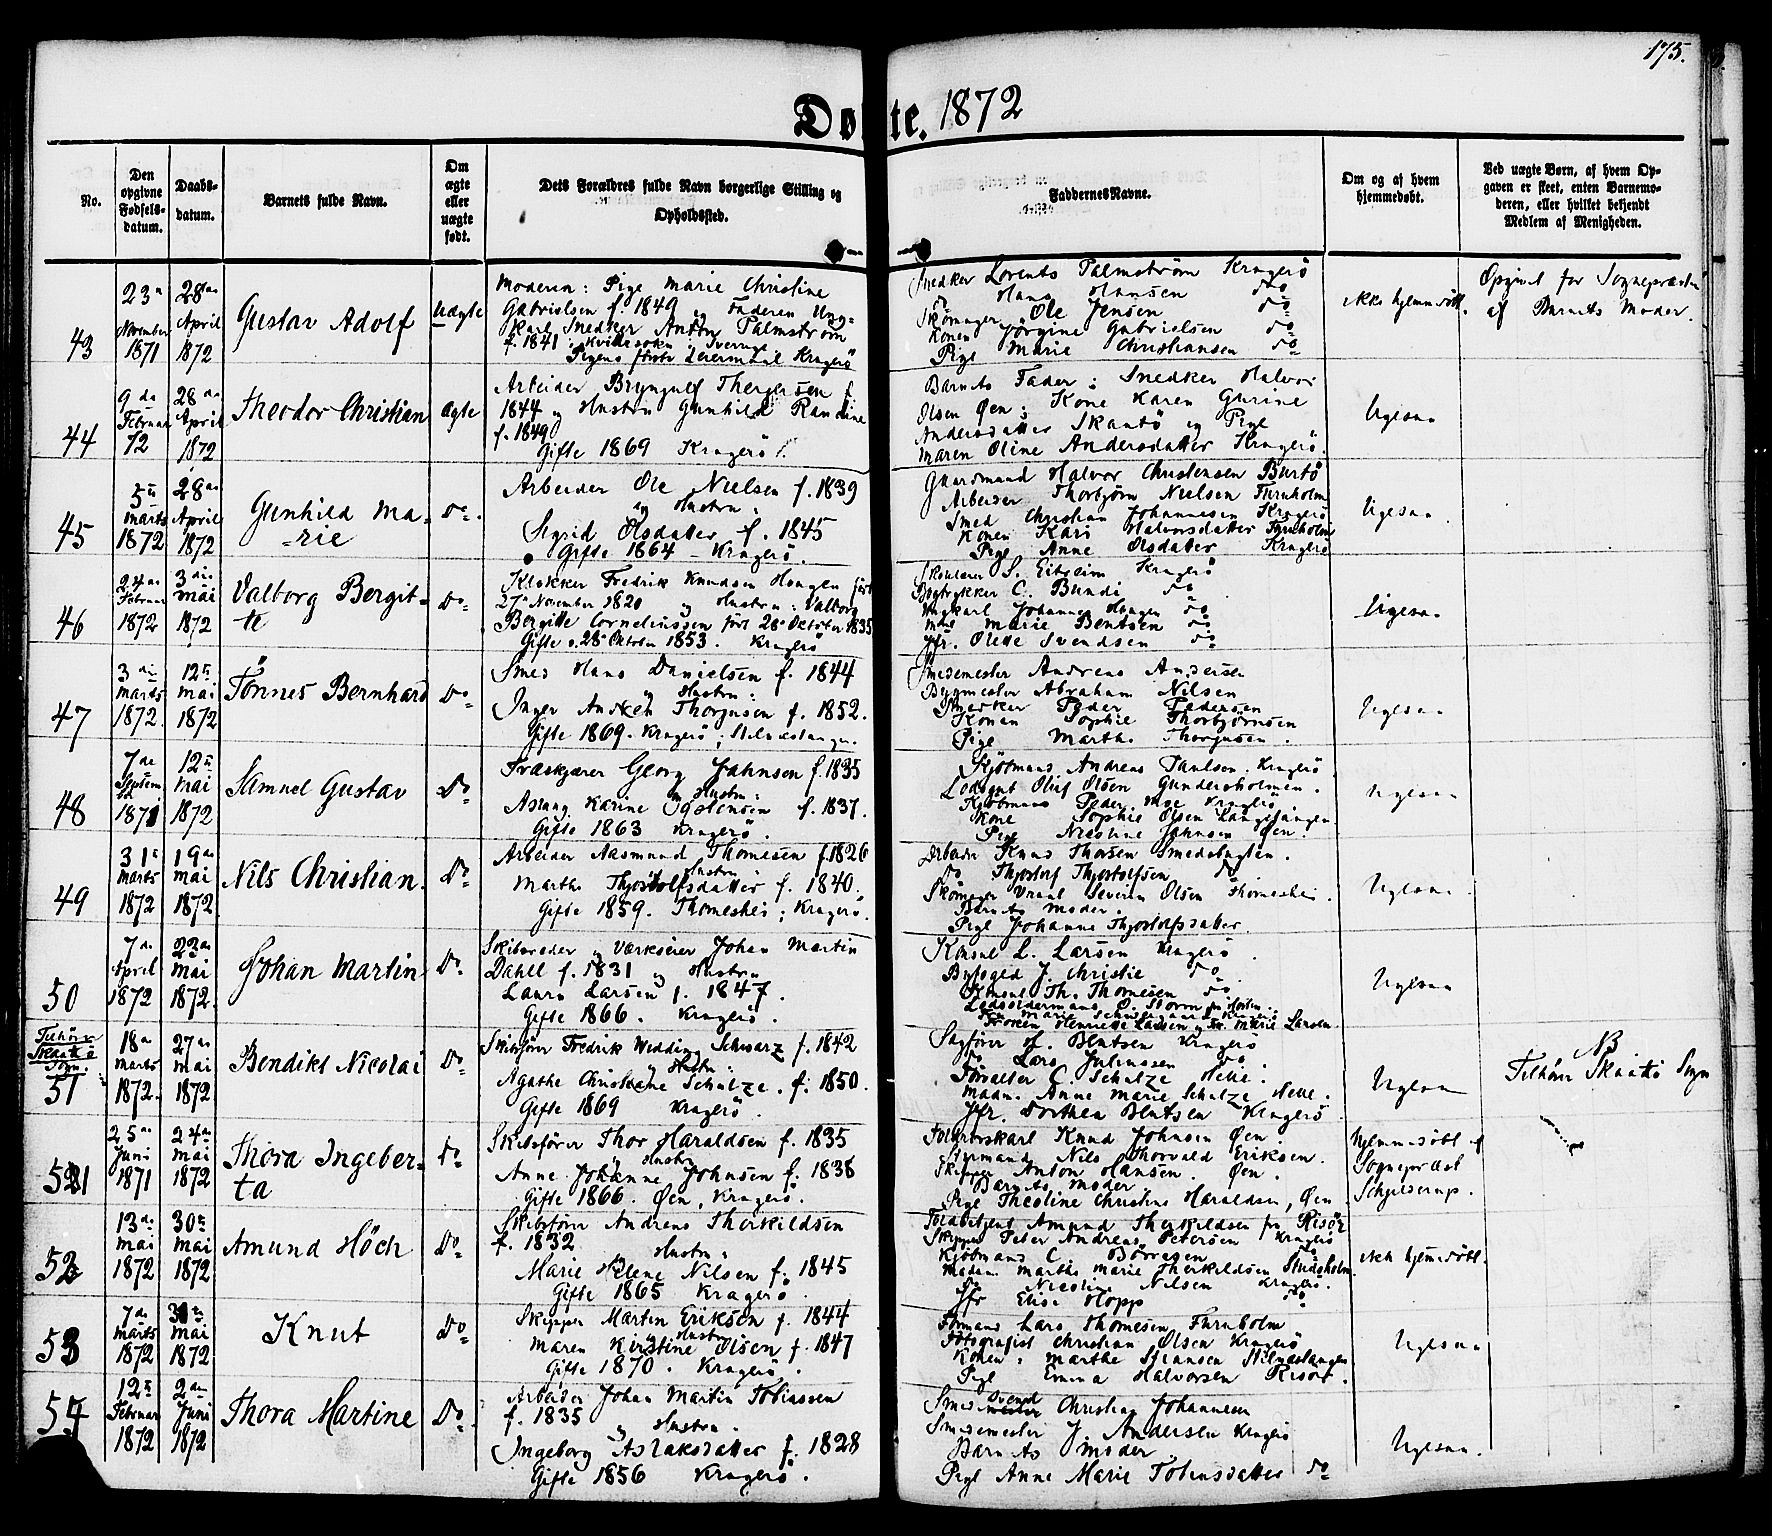 175.
Døbte. 1872
No.
Den opgivne Fødsels-datum.
Daabs-datum.
Barnets fulde Navn.
Om ægte eller uægte født.
Dets Forældres fulde Navn borgerlige Stilling og Opholdssted.
Faddernes Navne.
Om og af hvem hjemmedøbt.
Ved uægte Børn, af hvem Op-
gaven er skeet, enten Barnemo-
deren, eller hvilket bekjendt
Medlem af Menigheden.
43
23de November 1871
28de April 1872
Gustav Adolf
Uægte
Moderen: Pige Marie Christine
Gabrielsen f. 1849 og Faderen Ung-
karl Snedker Anton Palmstrøm
f. 1841 i Sverige
Pigens første Leiermaal Kragerø
Snedker Lorents Palmstrøm Kragerø
Do Hans Hansen Do
Skomager Ole Jensen Do
Konen Jørgine Gabrielsen Do
Pige Marie Christiansen Do
ikke hjemmedøbt.
Opgivet for Sognepræsten
af Barnets Moder.
44
9de Februar 72
28de April 1872
Theodor Christian
Ægte
Arbeider Bryngulf Thergersen f.
1844 og Hustru Gunhild Randine
f. 1849
Gifte 1869 Kragerø.
Barnets Fader; Snedker Halvor
Olsen Øen; Kone Karen Gurine
Andersdatter Skaatø og Pige
Maren Oline Andersdatter Kragerø.
Ligesaa
45
5te Marts 1872
28de April 1872
Gunhild Ma-
rie
Do
Arbeider Ole Nielsen f. 1839
og Hustru:
Sigrid Olsdatter f. 1845
Gifte 1864 - Kragerø.
Gaardmand Halvor Christensen Burtø
Arbeider Thorbjørn Nielsen Furuholm
Smed Christian Johannesen Kragerø
Konen Kari Halvorsdatter Furuholm
Pige Anne Olsdatter Kragerø
Ligesaa
46
24de Februar 1872
3die Mai 1872
Valborg Bergit-
te
Do
Klokker Fredrik Knudsen Haugen født
27de November 1820 og Hustru: Valborg
Bergitte Corneliussen født 28de Oktober 1835
Gifte 28de Oktober 1853. Kragerø
Skolelærer S. Eitreim Kragerø
Bogtrykker C. Bundi Do
Ungkarl Johannes Haugen Do
Mad. Marie Bentsen Do
Jfr. Olette Svendsen Do
Ligesaa
47
3die Marts 1872.
12te Mai 1872
Tönnes Bernhard
Do
Smed Hans Danielsen f. 1844
og Hustru:
Inger Thorgusen f. 1852.
Gifte 1869. Kragerø, Stilnæstangen.
Smedemester Andreas Andersen
Bygmester Abraham Nilsen
Snedker Peder Pedersen
Konen Sophie Thorbjørnsen
Pige Marthe Thorgusen.
Ligesaa
48
7de September 1871
12te Mai 1872
Samuel Gustav
Do
Træskjærer Georg Jahnsen f. 1835
og Hustru:
Aslaug Karine f. 1837.
Gifte 1863 Kragerø.
Kjøbmand Andreas Paulsen. Kragerø
Lodsgut Oluf Olsen Gundersholmen.
Kjøbmand Peder Moe Kragerø
Kone Sophie Olsen Langesangen
Pige Nicoline Jahnsen Øen.
Ligesaa
49
31te Marts 1872
19de Mai 1872
Nils Christian.
Do
Arbeider Aasmund Thomesen f. 1826
og Hustru
Marthe Thjostolfsdatter f. 1840.
Gifte 1859. Thomeshei; Kragerø.
Arbeider Knud Thorsen Smedsbugten.
Do Thjostolf Thjostolfsen Do
Skomager Severin Olsen Thomeshei.
Barnets Moder.
Pige Johanne Thjostolfsdatter.
Ligesaa
50
7de April 1872
23de Mai 1872.
Johan Martin
Do
Skibsreder og Værkseier Johan Martin
Dahll f. 1831 og Hustru
Laura Larsen f. 1847.
Gifte 1866. Kragerø.
Konsul L. Larsen Kragerø.
Byfoged J. Christie Do
Konsul Th. Thomesen Do
Lodsoldermand O. Storm
Frøken Henriette Larsen og Fr. Marie Larsen
Ligesaa
Tilhører Skaatø Sogn.
51
18de Marts 1872.
27de Mai 1872
Bendikt Nicolai
Do
Skibsfører Fredrik Wedding Schwarz f. 1842
og Hustru:
Agathe Christiane Schulze. f. 1850.
Gifte 1869 Kragerø.
Sagfører A. Bentsen Kragerø
Do Lars Juliussen Do
Forvalter C. Schulze Helle.
Madm. Anne Marie Schulze Helle.
Jfr. Dorthea Bentsen Kragerø
Ligesaa
NB
Tilhører Skaatø Sogn
51
25de Juni 1871
24de Mai 1872
Thora Ingeber-
ta
Do
Skibsfører Thor Haraldsen f. 1835
og Hustru
Anne Johanne Johnsen f. 1836
Gifte 1866. Øen, Kragerø.
Knud Johnsen Øen.
Styrmand Nils Thorvald Eriksen.
Skipper Anton Hansen. Øen.
Barnets Moder
Pige Theoline Christine Haraldsen, Øen
Hjemmedøbt af
Sognepræst
Schjelderup.
52
13de Mai 1872
30te Mai 1872
Amund Höch
Do
Skibsfører Andreas Therkildsen
f. 1832
Hustru:
Marie Helene Nilsen f. 1845
Gifte 1865 Kragerø.
Toldbetjent Amund Therkildsen fra Risør
Skipper Peder Andreas Petersen Kragerø
Kjøbmand C. Börresen Do
Madam Marthe Marie Therkildsen
Do Nicoline Nilsen Kragerø.
Jfr Elise Hopp Do
ikke hjemmedøbt.
53
7de Marts 1872
30te Mai 1872
Knut
Do
Skipper Morten Eriksen f. 1844
og Hustru
Maren Kirstine Olsen f. 1847
Gifte 1870. Kragerø.
Formand Lars Thomesen Furuholm
Fotografist Christian Olsen Kragerø
Konen: Marthe Stilnæstangen
Pige Emma Halvorsen Risør.
Ligesaa
54
12te Februar 1872
2den Juni 1872
Thora Martine
Do.
Arbeider Johan Martin Tobiassen
f. 1835
og Hustru:
Ingeborg Aslaksdatter f. 1828
Gifte 1856 Kragerø.
Smedsvend Christian Johannesen
Smedemester J. Andersen Kragerø
Barnets Moder
Pige Anne Marie Tobiasdatter Do
Ligesaa.